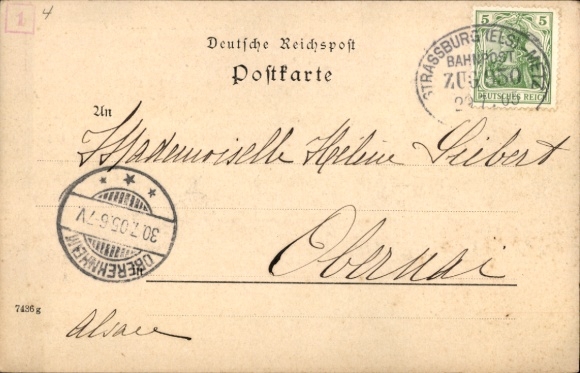 1
4
Deutsche Reichspost
Postkarte
5 5
DEUTSCHES REICH
STRASSBURG (ELS)-METZ
BAHNPOST
ZUG
An
Mademoiselle Hélène Siebert
OBEREHNHEIM
30.7.05.6-7V.
Obernai
7436g
Alsace